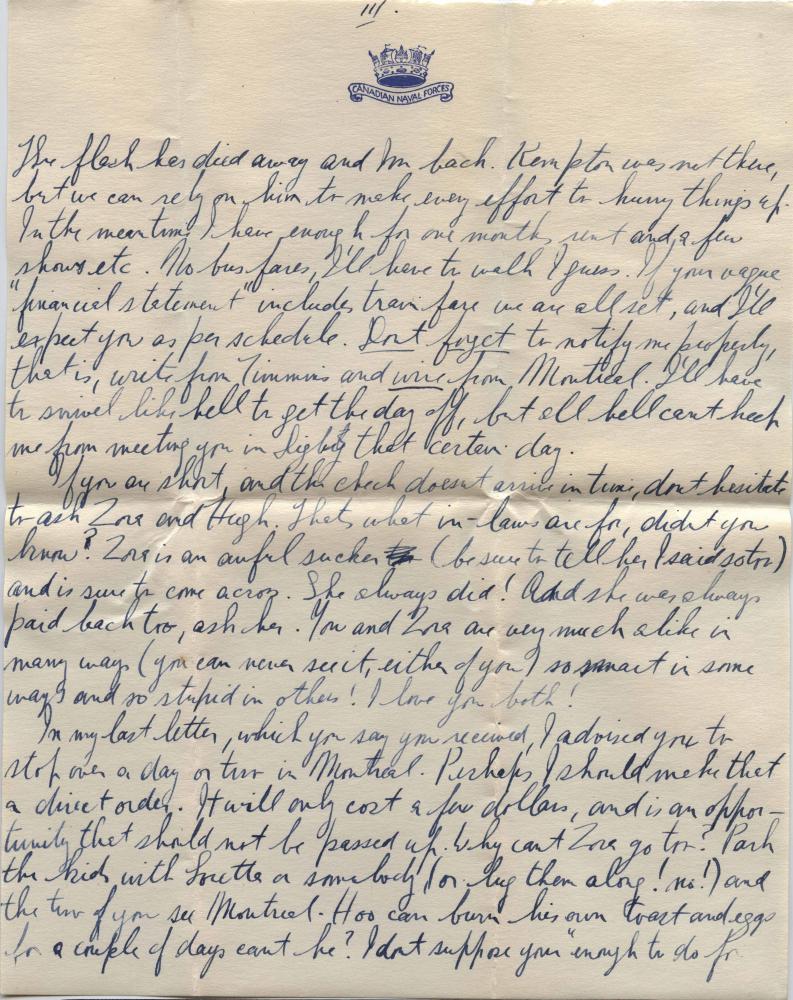 III.
CANADIAN NAVAL FORCES
The flash has died away and I'm back. Kempton was not there,
but we can rely on him to make every effort to hurry things up.
In the meantime I have enough for one months rent and a few
shows etc. No bus fares, I'll have to walk I guess. If your vague
"financial statement" includes train fare we are all set, and I'll
expect you as per schedule. Dont forget to notify me properly,
that is, write from Timmins and wire from Montreal. I'll have
to swivel like hell to get the day off, but all hell cant keep
me from meeting you in that certain day.
If you are short, and the check doesnt arrive in time, dont hesitate
to ask Zora and Hugh. Thats what in-laws are for, didnt you
know? Zora is an awful sucker (be sure to tell her I said so too)
and is sure to come across. She always did! And she was always
paid back too, ask her. You and Zora are very much alike in
many ways (you can never see it, either of you) so smart in some
ways and so stupid in others! I love you both!
In my last letter, which you say you received, I advised you to
stop over a day or two in Montreal. Perhaps I should make that
a direct order. It will only cost a few dollars, and is an oppor-
tunity that should not be passed up. Why cant Zora go too? Park
the kids with Loretta or somebody (or lug them along! no!) and
the two of you see Montreal. Hoo can burn his own toast and eggs
for a couple of days cant he? I dont suppose your "enough to do for